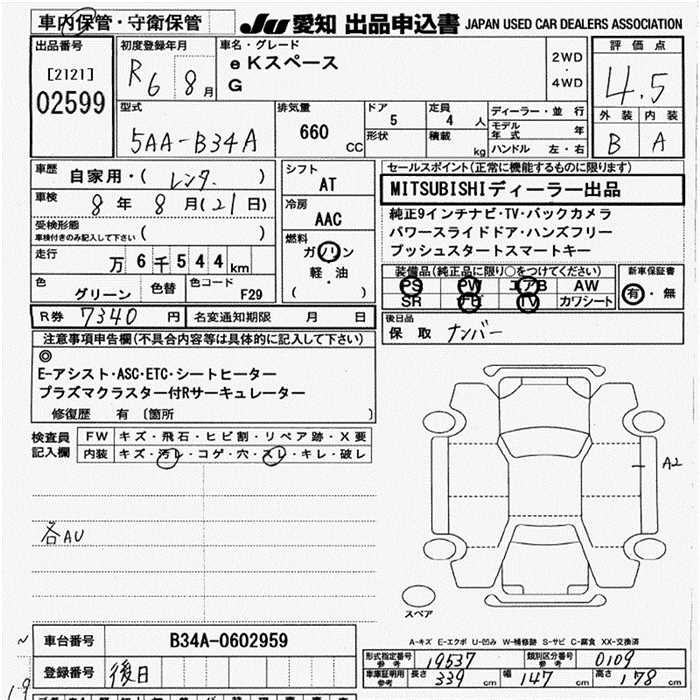 車内保管・守衛保管
JU 愛知 出品申込書 JAPAN USED CAR DEALERS ASSOCIATION
出品番号
[2121]
02599
初度登録年月
R6 8月
車名・グレード
eKスペース
G
2WD
・
4WD
評価点
4.5
外装 内装
B A
型式
5AA-B34A
排気量
660 CC
ドア
5
形状
定員
4 人
積載
kg
ディーラー・並行
モデル年式 年
ハンドル 左・右
車歴
自家用・( レンタ )
車検
8年 8月(21日)
受検形態
車検付きのみ記入して下さい ( )
走行
万6千544km
色
グリーン
色替
色コード
F29
シフト
AT
冷房
AAC
燃料
ガソリン
軽・油
( )
セールスポイント(正常に機能するものに限ります)
MITSUBISHIディーラー出品
純正9インチナビ・TV・バックカメラ
パワースライドドア・ハンズフリー
プッシュスタートスマートキー
装備品(純正品に限り○をつけてください)
PS PW エアB AW
SR TV カワシート
新車保証書
有・無
R券 7340 円 名変通知期限 月 日
後日品
保 取 ナンバー
注意事項申告欄(不具合内容等は具体的に記入して下さい)
◎
E-アシスト・ASC・ETC・シートヒーター
プラズマクラスター付Rサーキュレーター
修復歴 有 〔箇所 〕
検査員記入欄
FW キズ・飛石・ヒビ割・リペア跡・X要
内装 キズ・汚レ・コゲ・穴・スレ・キレ・破レ
各AU
A2
スペア
A-キズ E-エクボ U-凹み W-補修跡 S-サビ C-腐食 XX-交換済
車台番号 B34A-0602959
登録番号 後日
形式指定番号 参考 19537 類別区分番号 参考 0109
車庫証明用参考 長さ 339 cm 幅 147 cm 高さ 178 cm